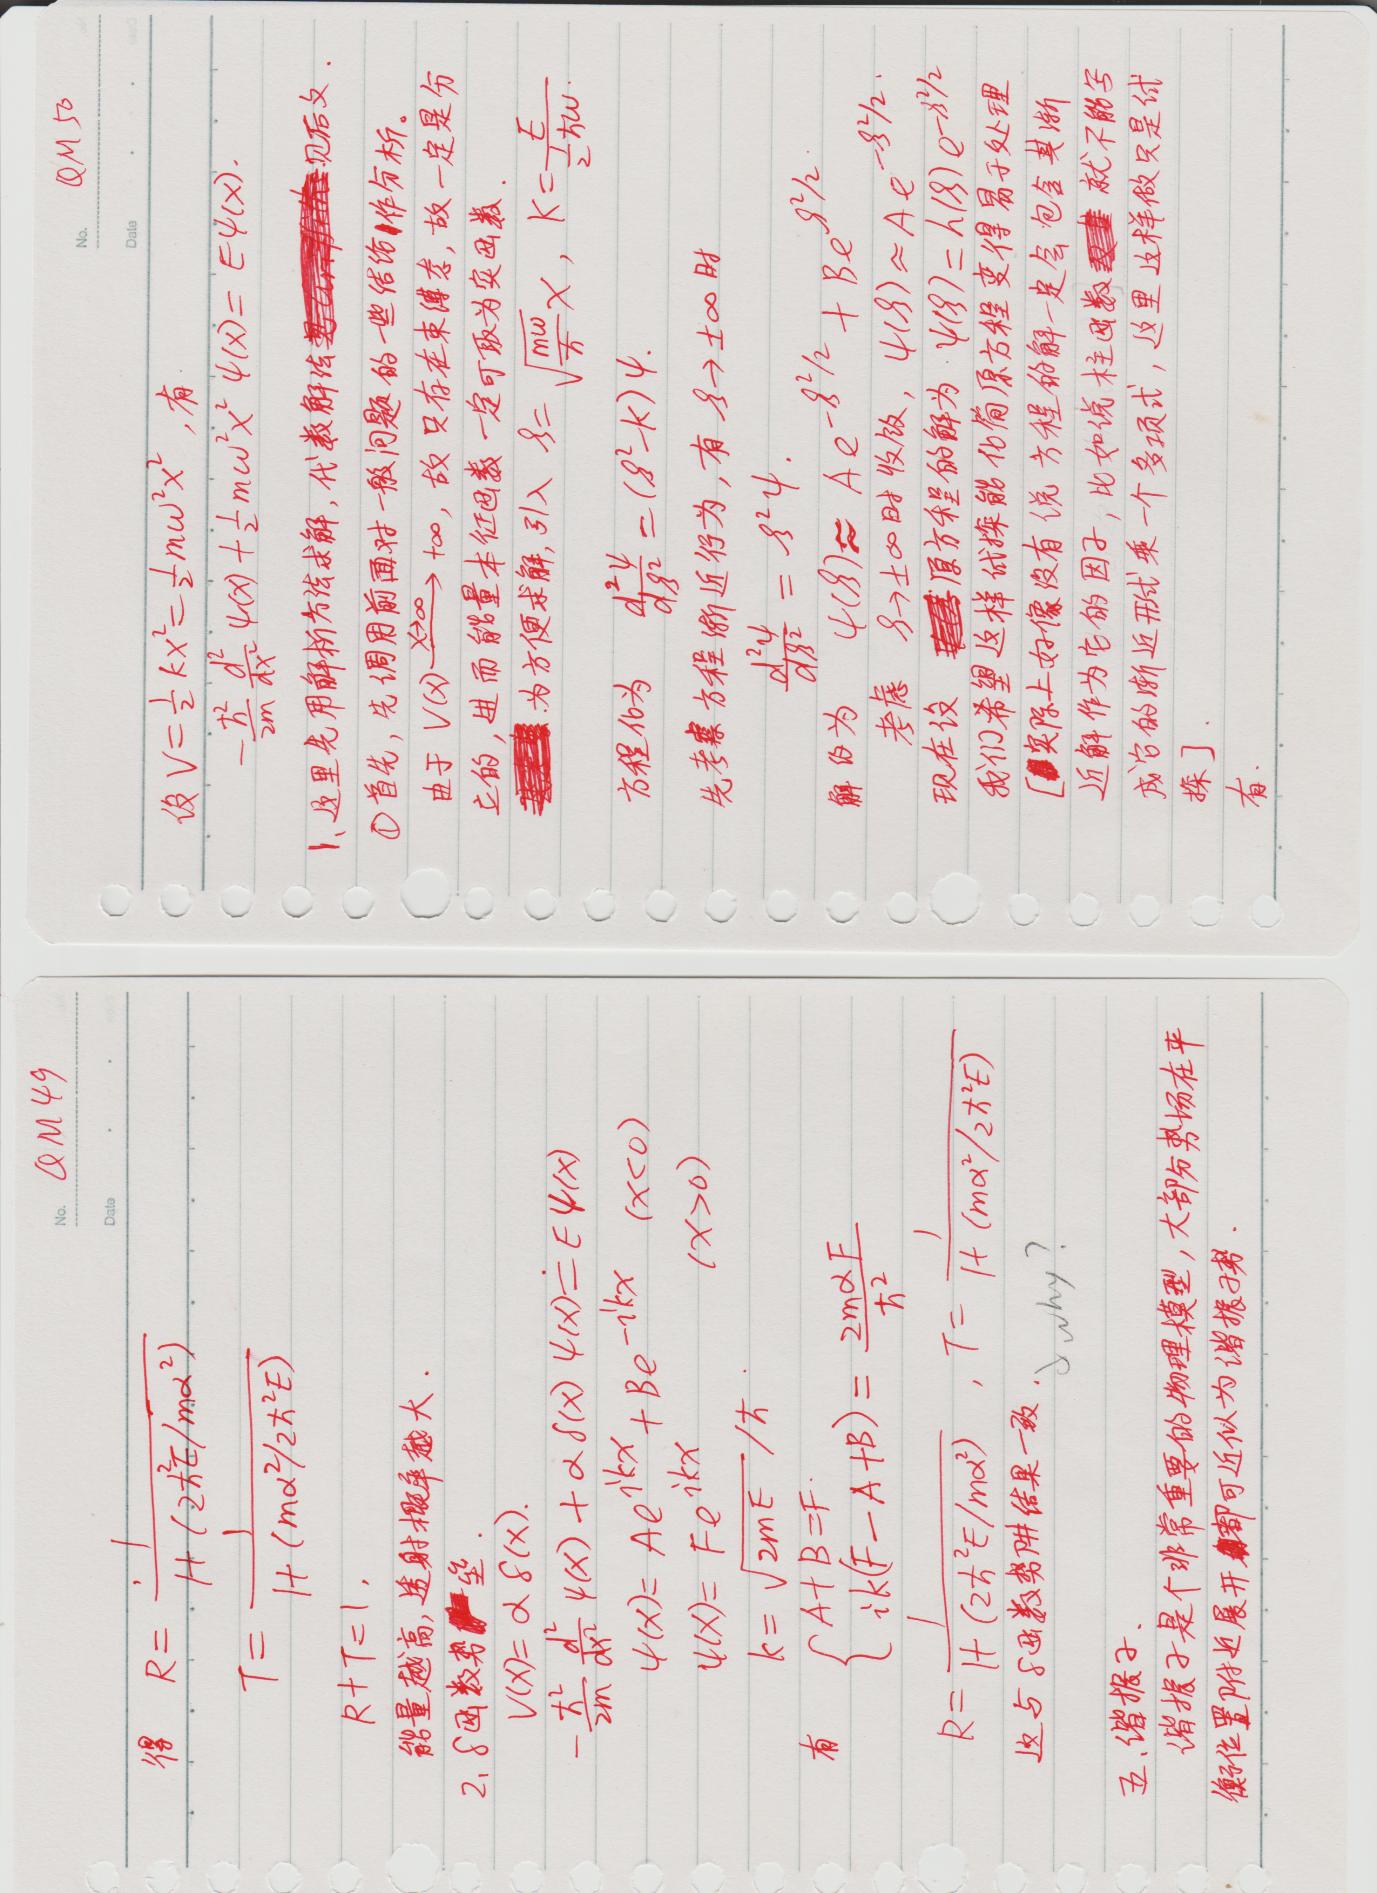 No. QM49
Date
得 R = 1/(1+(2ħ²E/mα²))
T = 1/(1+(mα²/2ħ²E))
R+T=1,
能量越高,透射概率越大.
2、δ函数势垒.
V(x)=αδ(x).
-ħ²/2m d²/dx² ψ(x) + αδ(x) ψ(x) = Eψ(x)
ψ(x) = Ae^{ikx} + Be^{-ikx} (x<0)
ψ(x) = Fe^{ikx} (x>0)
k = √(2mE) /ħ
有 { A+B=F.
ik(F-A+B) = 2mαF/ħ²
R = 1/(1+(2ħ²E/mα²)) , T = 1/(1+(mα²/2ħ²E))
这与δ函数势阱结果一致.
why?
五、谐振子.
谐振子是个非常重要的物理模型,大部分势场在平
衡位置附近展开都可近似为谐振子势.
No. QM50
Date
设 V = ½kx² = ½mω²x² ,有
-ħ²/2m d²/dx² ψ(x) + ½mω²x² ψ(x) = Eψ(x).
1、这里先用解析方法求解,代数解法见后文.
①首先,先调用前面对一般问题的一些结论作分析。
由于 V(x) —x→∞→ +∞, 故只存在束缚态,故一定是分
立的,进而能量本征函数一定可取为实函数.
为方便求解,引入 ξ = √(mω/ħ) x , K = E/(½ħω).
方程化为 d²ψ/dξ² = (ξ²-K)ψ.
先考察方程渐近行为,有 ξ→±∞ 时
d²ψ/dξ² = ξ²ψ.
解仅为 ψ(ξ) ≈ Ae^{-ξ²/2} + Be^{ξ²/2}.
考虑 ξ→±∞时收敛, ψ(ξ) ≈ Ae^{-ξ²/2}.
现在设 原方程的解为 ψ(ξ) = h(ξ)e^{-ξ²/2}
我们希望这样试探能化简原方程变得易于处理
[实际上好像没有说方程的解一定会包含其渐
近解作为它的因子,比如说柱函数就不能写
成它的渐近形式乘一个多项式,这里这样做只是试
探].
有.